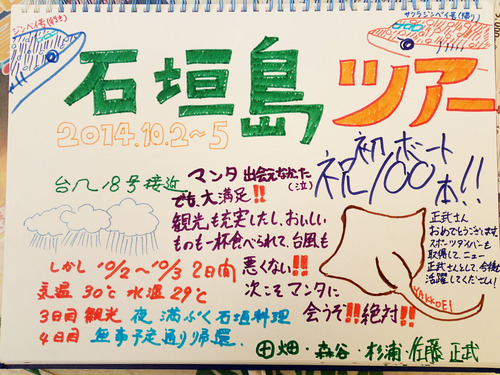 ジンベイ号(行き)
サクラジンベイ号(帰り)
石垣島ツアー
2014.10.2~5
祝初ボート
100本!!
台風18号接近
マンタ出会えなかた(泣)
でも、大満足!!
観光も充実したし、おいしい
ものも一杯食べられて、台風も
悪くない!!
次こそマンタに
会うぞ!!絶対!!
正武さん
おめでとうございます。
スポーツダイバーも
取得して、ニュー
正武さんとして、今後も
活躍してください!
YAKKOEI
しかし 10/2~10/3 2日間
気温 30℃ 水温 29℃
3日目 観光 夜 満ぷく石垣料理
4日目 無事予定通り帰還。
田畑・森谷・杉浦・佐藤 正武